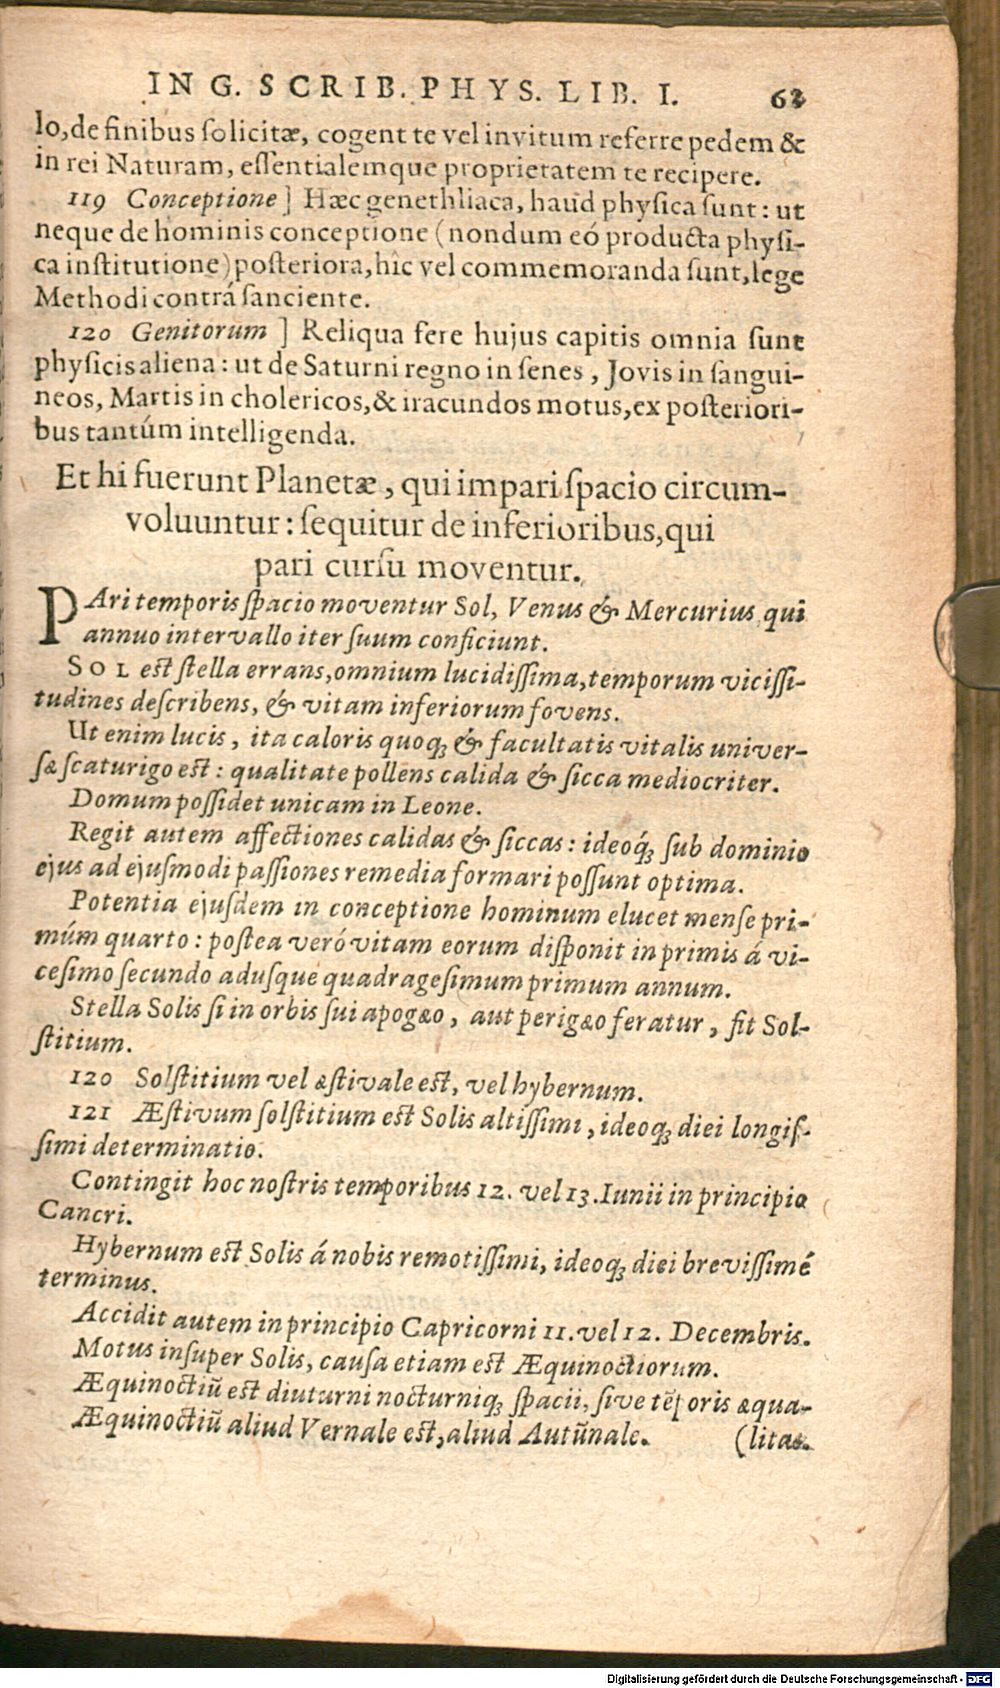 IN G. SCRIB. PHYS. LIB. I. 63
lo, de finibus ſolicitæ, cogent te vel invitum referre pedem &
in rei Naturam, eſſentialemque proprietatem te recipere.
119 Conceptione ] Hæc genethliaca, haud phyſica ſunt: ut
neque de hominis conceptione (nondum eó producta phyſi-
ca inſtitutione) poſteriora, hîc vel commemoranda ſunt, lege
Methodi contrá ſanciente.
120 Genitorum ] Reliqua fere hujus capitis omnia ſunt
phyſicis aliena: ut de Saturni regno in ſenes, Jovis in ſangui-
neos, Martis in cholericos, & iracundos motus, ex poſteriori-
bus tantúm intelligenda.
Et hi fuerunt Planetæ, qui impari ſpacio circum-
voluuntur: ſequitur de inferioribus, qui
pari curſu moventur.
PAri temporis ſpacio moventur Sol, Venus & Mercurius, qui
annuo intervallo iter ſuum conficiunt.
SOL eſt ſtella errans, omnium lucidiſſima, temporum viciſſi-
tudines deſcribens, & vitam inferiorum fovens.
Ut enim lucis, ita caloris quoq; & facultatis vitalis univer-
ſæ ſcaturigo eſt: qualitate pollens calida & ſicca mediocriter.
Domum poſſidet unicam in Leone.
Regit autem affectiones calidas & ſiccas: ideoq́; ſub dominio
ejus ad ejuſmodi paſſiones remedia formari poſſunt optima.
Potentia ejuſdem in conceptione hominum elucet menſe pri-
múm quarto: poſtea veró vitam eorum diſponit in primis á vi-
ceſimo ſecundo aduſque quadrageſimum primum annum.
Stella Solis ſi in orbis ſui apogæo, aut perigæo feratur, fit Sol-
ſtitium.
120 Solſtitium vel æſtivale eſt, vel hybernum.
121 Æſtivum ſolſtitium eſt Solis altiſſimi, ideoq; diei longiſ-
ſimi determinatio.
Contingit hoc noſtris temporibus 12. vel 13. Iunii in principio
Cancri.
Hybernum eſt Solis á nobis remotiſſimi, ideoq; diei breviſſimé
terminus.
Accidit autem in principio Capricorni 11. vel 12. Decembris.
Motus inſuper Solis, cauſa etiam eſt Æquinoctiorum.
Æquinoctiũ eſt diuturni nocturniq; ſpacii, ſive tẽporis æqua-
Æquinoctiũ aliud Vernale eſt, aliud Autũnale. (litas.
Digitalisierung gefördert durch die Deutsche Forschungsgemeinschaft - DFG